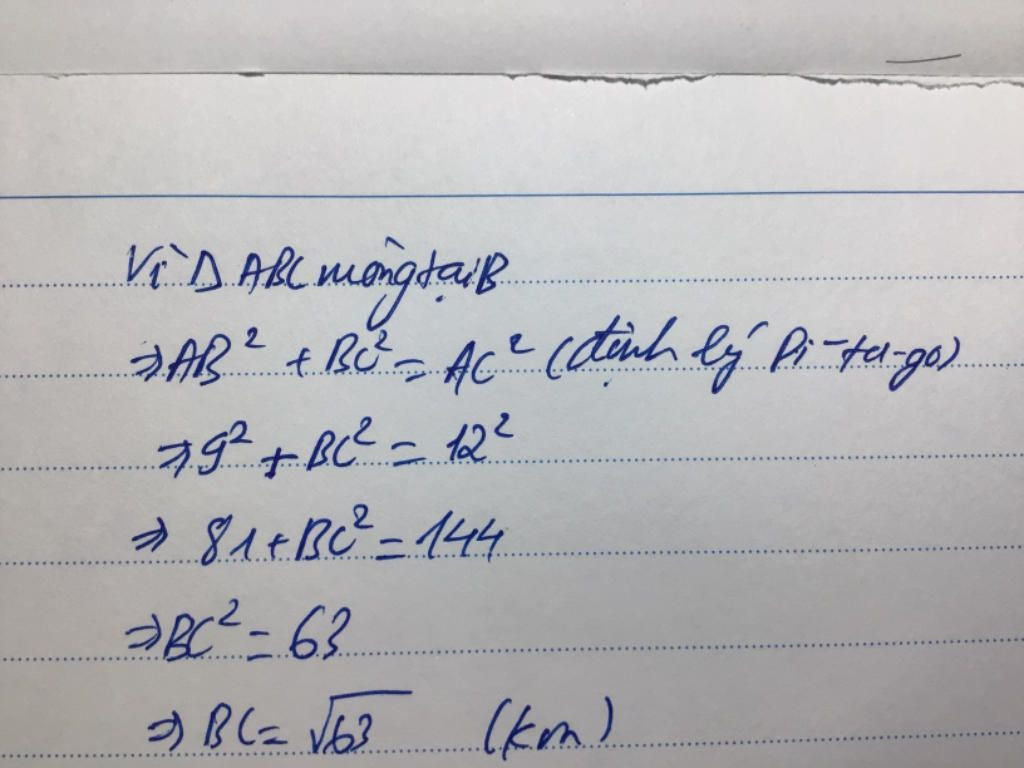 Vì Δ ABC vuông tại B
⇒ AB² + BC² = AC² (định lý Pi-ta-go)
⇒ 9² + BC² = 12²
⇒ 81 + BC² = 144
⇒ BC² = 63
⇒ BC = √63 (km)